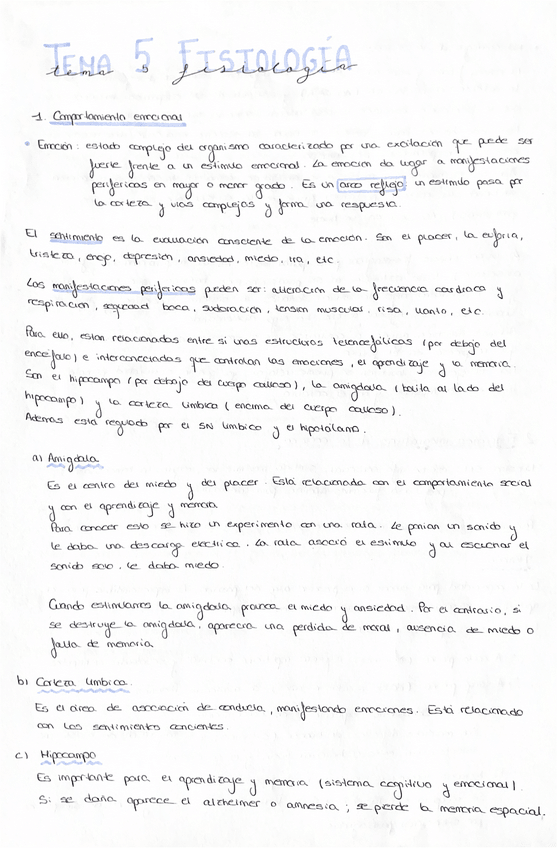 TEMA 5 FISIOLOGÍA
tema 5 fisiología
1. Comportamiento emocional
• Emoción: estado complejo del organismo caracterizado por una excitación que puede ser
fuerte frente a un estimulo emocional. La emoción da lugar a manifestaciones
perifericas en mayor o menor grado. Es un arco reflejo un estimulo pasa por
la corteza y vias complejas y forma una respuesta.
El sentimiento es la evaluación consciente de la emoción. Son el placer, la euforia,
tristeza, enojo, depresión, ansiedad, miedo, ira, etc.
Las manifestaciones perifericas pueden ser: alteración de la frecuencia cardiaca y
respiración, sequedad boca, sudoración, tension muscular, risa, llanto, etc.
Para ello, estan relacionadas entre si unas estructuras telencefálicas (por debajo del
encéfalo) e interconectadas que controlan las emociones, el aprendizaje y la memoria.
Son el hipocampo (por debajo del cuerpo calloso), la amigdala (bolita al lado del
hipocampo) y la corteza limbica (encima del cuerpo calloso).
Además está regulado por el SN limbico y el hipotálamo.
a) Amigdala
Es el centro del miedo y del placer. Está relacionada con el comportamiento social
y con el aprendizaje y memoria
Para conocer esto se hizo un experimento con una rata. Le ponian un sonido y
le daba una descarga electrica. La rata asoció el estimulo y al escuchar el
sonido solo, le daba miedo.
Cuando estimulamos la amigdala provoca el miedo y ansiedad. Por el contrario, si
se destruye la amigdala, aparecia una perdida de moral, ausencia de miedo o
falta de memoria
b) Corteza limbica.
Es el área de asociación de conducta, manifestando emociones. Está relacionado
con los sentimientos concientes.
c) Hipocampo
Es importante para el aprendizaje y memoria (sistema cognitivo y emocional).
Si se daña aparece el alzheimer o amnesia; se pierde la memoria espacial.